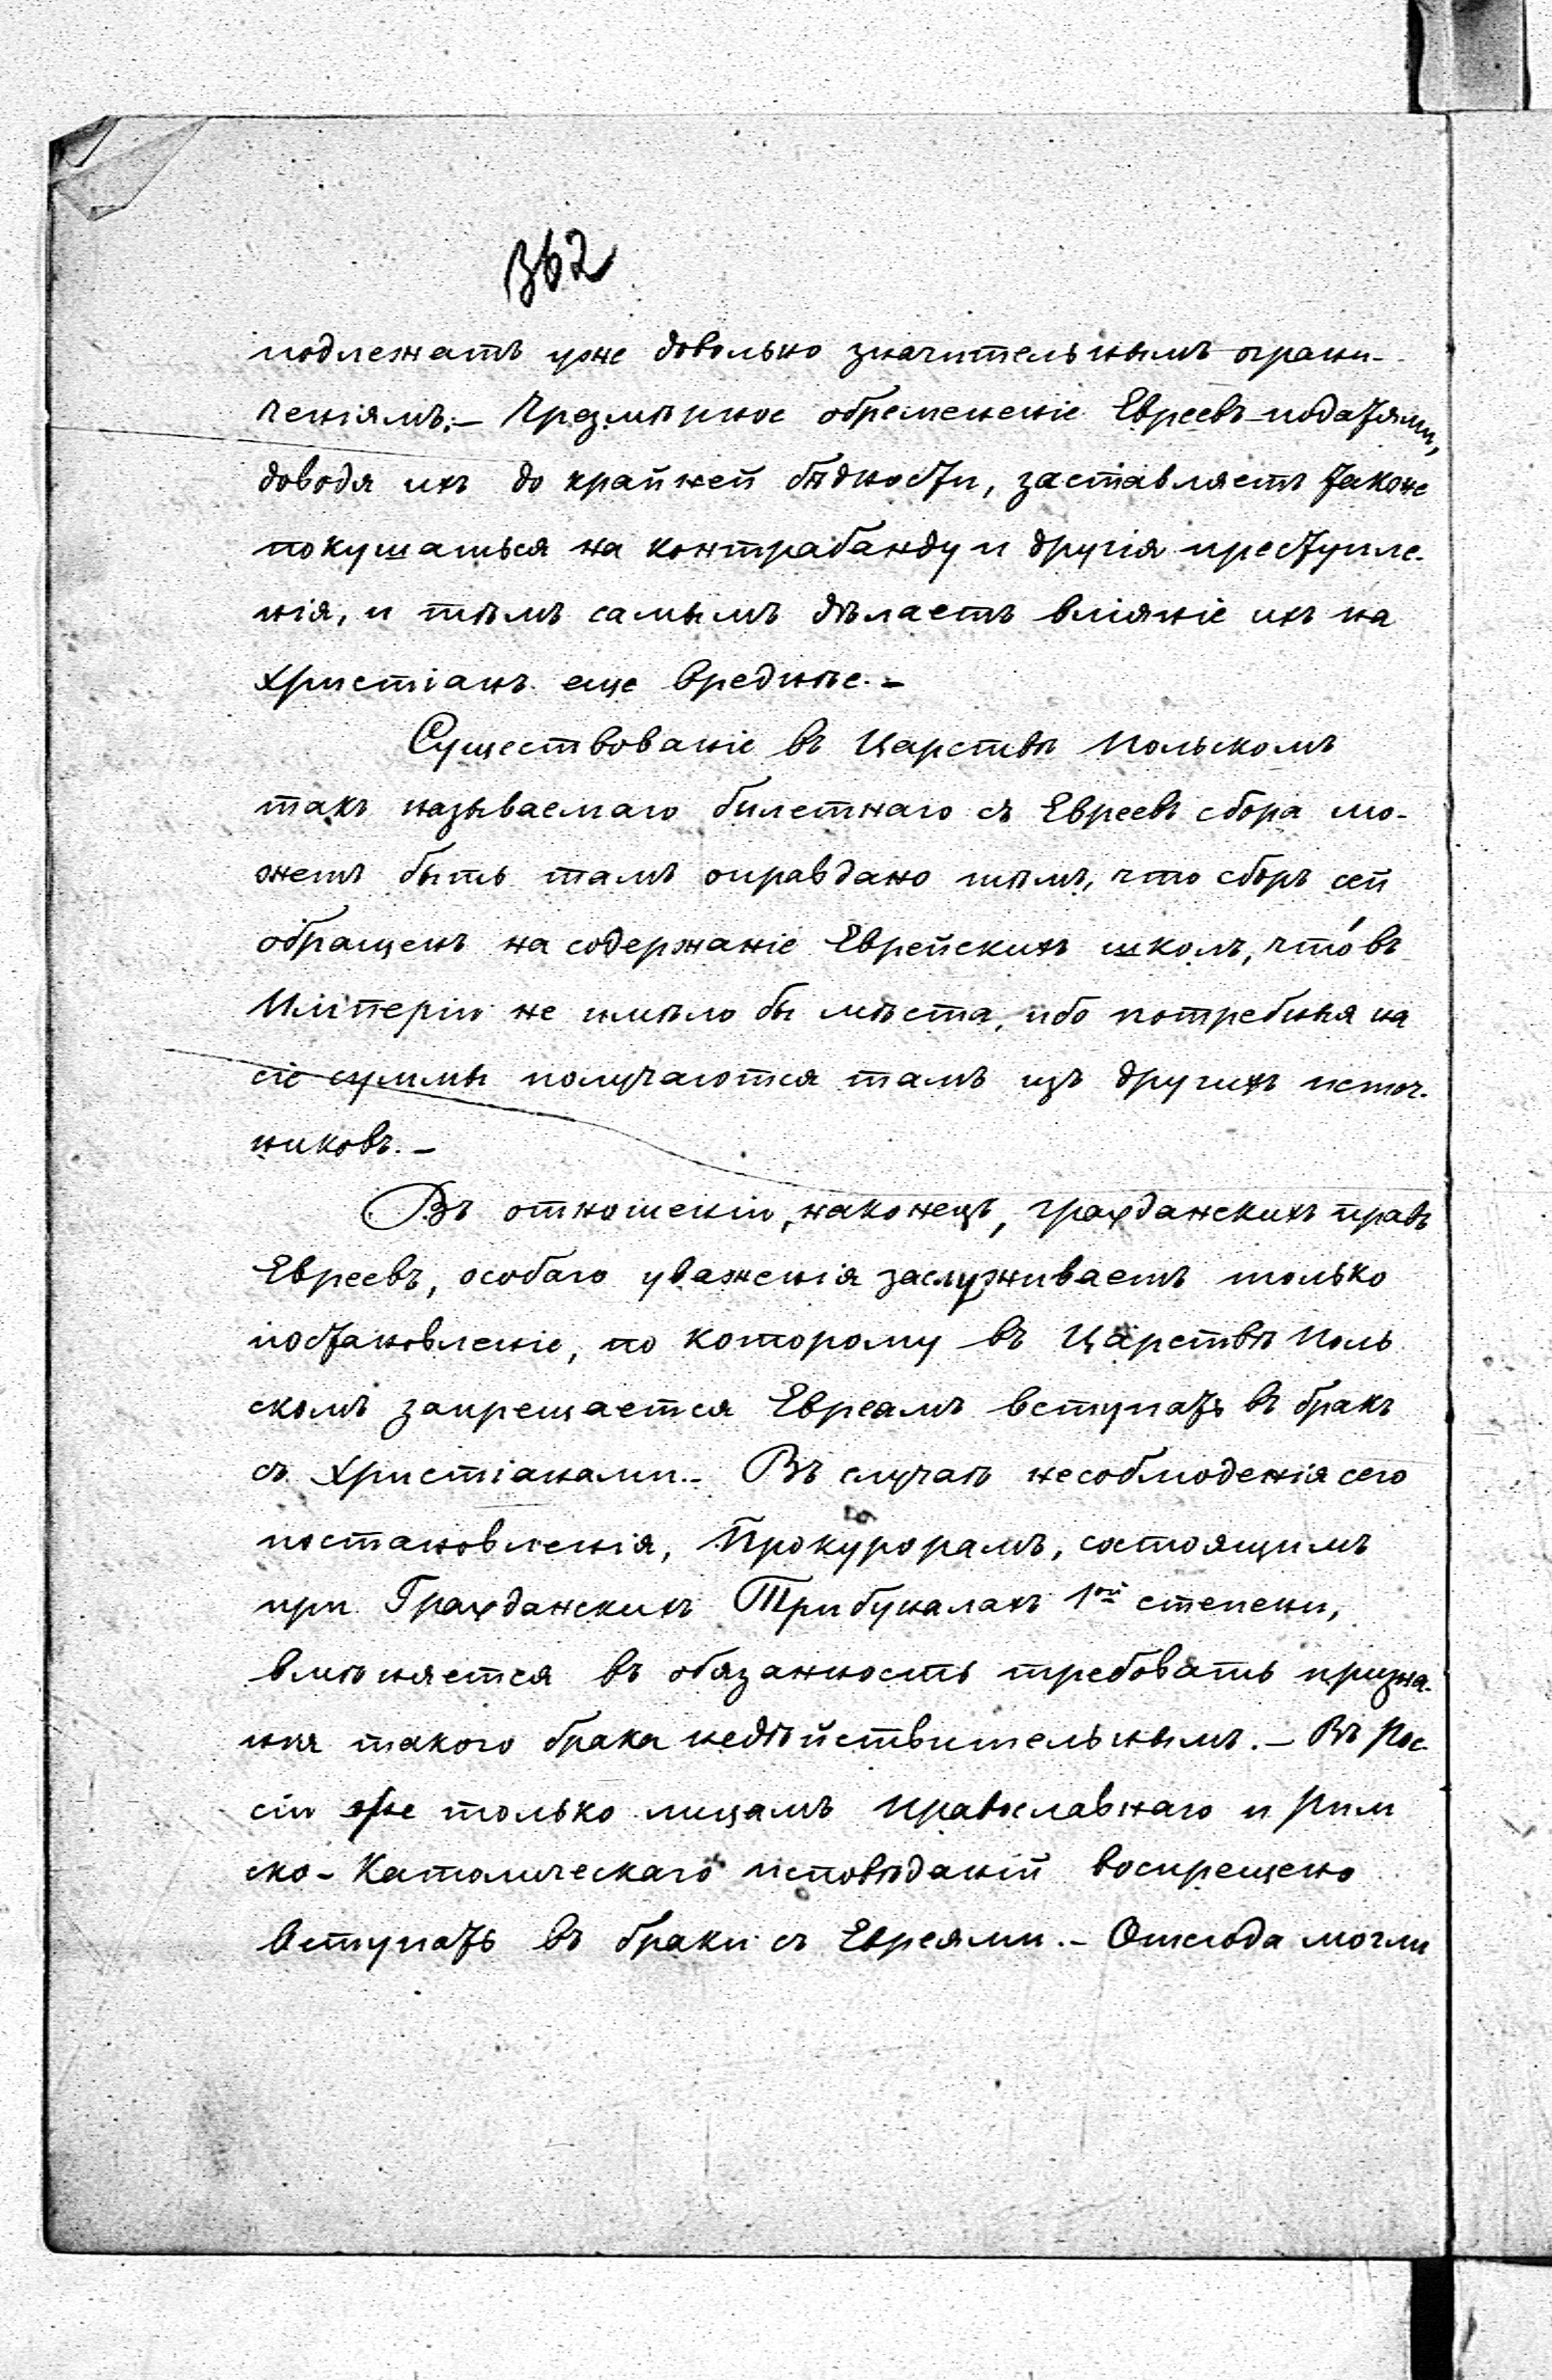 362
подлежатъ уже довольно значительнымъ ограни-
ченіямъ.— Чрезмѣрное обремененіе Евреевъ податями,
доводя ихъ до крайней бѣдности, заставляетъ также
покушаться на контрабанду и другія преступле-
нія, и тѣмъ самымъ дѣлаетъ вліяніе ихъ на
Христіанъ еще вреднѣе.—
Существованіе въ Царствѣ Польскомъ
такъ называемаго билетнаго съ Евреевъ сбора мо-
жетъ быть тамъ оправдано тѣмъ, что сборъ сей
обращенъ на содержаніе Еврейскихъ школъ, что́ въ
Имперіи не имѣло бы мѣста, ибо потребныя на
сіе суммы получаются тамъ изъ другихъ источ-
никовъ.—
Въ отношеніи, наконецъ, гражданскихъ правъ
Евреевъ, особаго уваженія заслуживаетъ только
постановленіе, по которому въ Царствѣ Поль
скомъ запрещается Евреямъ вступать въ бракъ
съ Христіанами.— Въ случаѣ несоблюденія сего
постановленія, Прокурорамъ, состоящимъ
при Гражданскихъ Трибуналахъ 1ой степени,
вмѣняется въ обязанность требовать призна-
нія такого брака недѣйствительнымъ.— Въ Рос-
сіи же только лицамъ Православнаго и Рим
ско-Католическаго исповѣданій воспрещено
вступать въ браки съ Евреями.— Отсюда могли